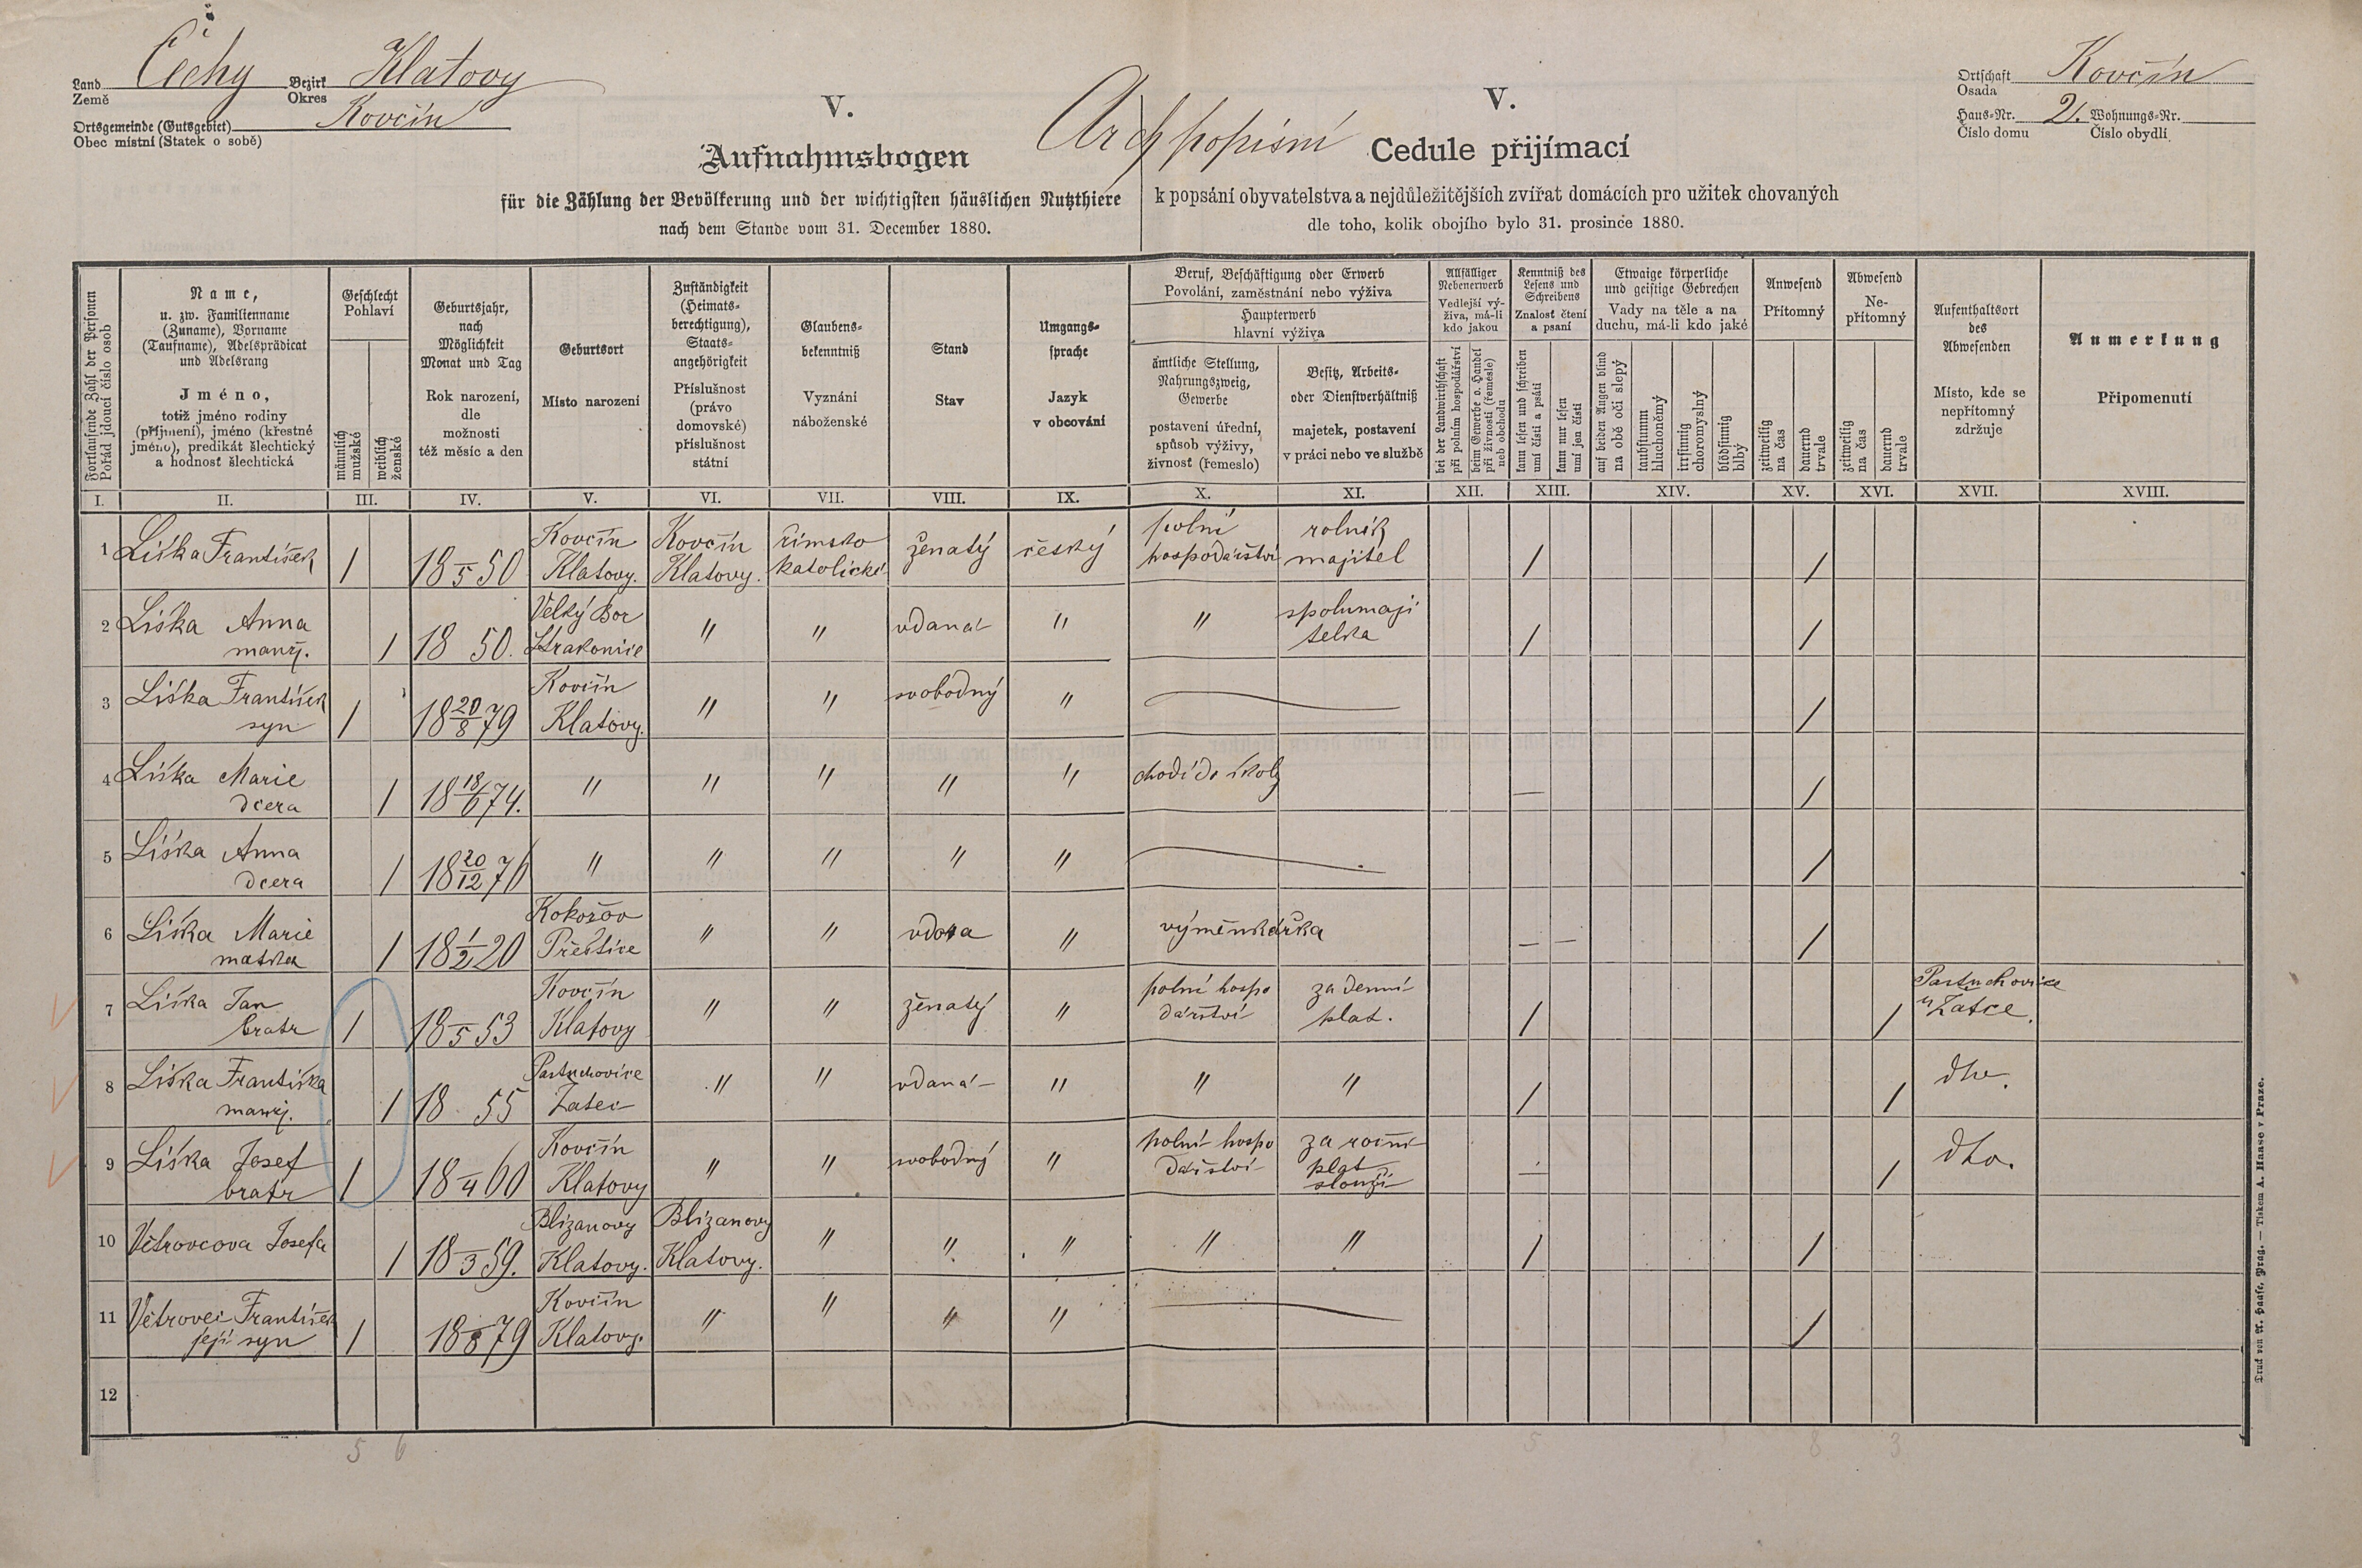 Land Čechy Bezirk Klatovy
Země Okres
Ortsgemeinde (Gutsgebiet) Kovčín
Obec místní (Statek o sobě)
Ortschaft Kovčín
Osada
Haus-Nr. 21. Wohnungs-Nr.
Číslo domu Číslo obydlí
V.
Aufnahmsbogen
für die Zählung der Bevölkerung und der wichtigsten häuslichen Nutzthiere
nach dem Stande vom 31. December 1880.
Arch popisní
V.
Cedule přijímací
k popsání obyvatelstva a nejdůležitějších zvířat domácích pro užitek chovaných
dle toho, kolik obojího bylo 31. prosince 1880.
Fortlaufende Zahl der Personen
Pořád jdoucí číslo osob
Name,
u. zw. Familienname
(Zuname), Vorname
(Taufname), Adelsprädicat
und Adelsrang
Jméno,
totiž jméno rodiny
(příjmení), jméno (křestné
jméno), predikát šlechtický
a hodnosť šlechtická
Geschlecht
Pohlaví
männlich
mužské
weiblich
ženské
Geburtsjahr,
nach
Möglichkeit
Monat und Tag
Rok narození,
dle
možnosti
též měsíc a den
Geburtsort
Místo narození
Zuständigkeit
(Heimats-
berechtigung),
Staats-
angehörigkeit
Příslušnost
(právo
domovské)
příslušnost
státní
Glaubens-
bekenntniß
Vyznání
náboženské
Stand
Stav
Umgangs-
sprache
Jazyk
v obcování
Beruf, Beschäftigung oder Erwerb
Povolání, zaměstnání nebo výživa
Haupterwerb
hlavní výživa
ämtliche Stellung,
Nahrungszweig,
Gewerbe
postavení úřední,
způsob výživy,
živnosť (řemeslo)
Besitz, Arbeits-
oder Dienstverhältniß
majetek, postavení
v práci nebo ve službě
Allfälliger
Nebenerwerb
Vedlejší vý-
živa, má-li
kdo jakou
bei der Landwirthschaft
při polním hospodářství
beim Gewerbe o. Handel
při živnosti (řemesle)
neb obchodu
Kenntniß des
Lesens und
Schreibens
Znalosť čtení
a psaní
kann lesen und schreiben
umí čísti a psáti
kann nur lesen
umí jen čísti
Etwaige körperliche
und geistige Gebrechen
Vady na těle a na
duchu, má-li kdo jaké
auf beiden Augen blind
na obě oči slepý
taubstumm
hluchoněmý
irrsinnig
choromyslný
blödsinnig
blbý
Anwesend
Přítomný
zeitweilig
na čas
dauernd
trvale
Abwesend
Ne-
přítomný
zeitweilig
na čas
dauernd
trvale
Aufenthaltsort
des
Abwesenden
Místo, kde se
nepřítomný
zdržuje
Anmerkung
Připomenutí
I. II. III. IV. V. VI. VII. VIII. IX. X. XI. XII. XIII. XIV. XV. XVI. XVII. XVIII.
Kovčín Kovčín římsko polní rolník
1 Liška František / 18 5 50 Klatovy. Klatovy. katolické ženatý český hospodářství majitel / /
Velký Bor spolumaji
2 Liška Anna manž. / 18 50. Strakonice " " vdaná " " telka / /
Kovčín
3 Liška František syn / 18 20/8 79 Klatovy. " " svobodný " /
4 Liška Marie dcera / 18 18/6 74. " " " " " chodí do školy — /
5 Liška Anna dcera / 18 20/12 76 " " " " " /
Kokořov
6 Liška Marie matka / 18 1/2 20 Přeštice " " vdova " výměnkářka — — /
Kovčín polní hospo za denní Pastuchovice
7 Liška Jan bratr / 18 5 53 Klatovy " " ženatý " dářství plat. / / u Žatce.
Pastuchovice
8 Liška Františka manž. / 18 55 Žatec " " vdaná " " " / / dto.
Kovčín polní hospo za roční
9 Liška Josef bratr / 18 4 60 Klatovy " " svobodný " dářství plat slouží — / dto.
Blizanovy Blizanovy
10 Větrovcova Josefa / 18 3 59. Klatovy. Klatovy. " " " " " / /
Kovčín
11 Větrovec František její syn / 18 8 79 Klatovy. " " " " /
12
5 6 5 8 3
Druck von A. Haase, Prag. — Tiskem A. Haase v Praze.